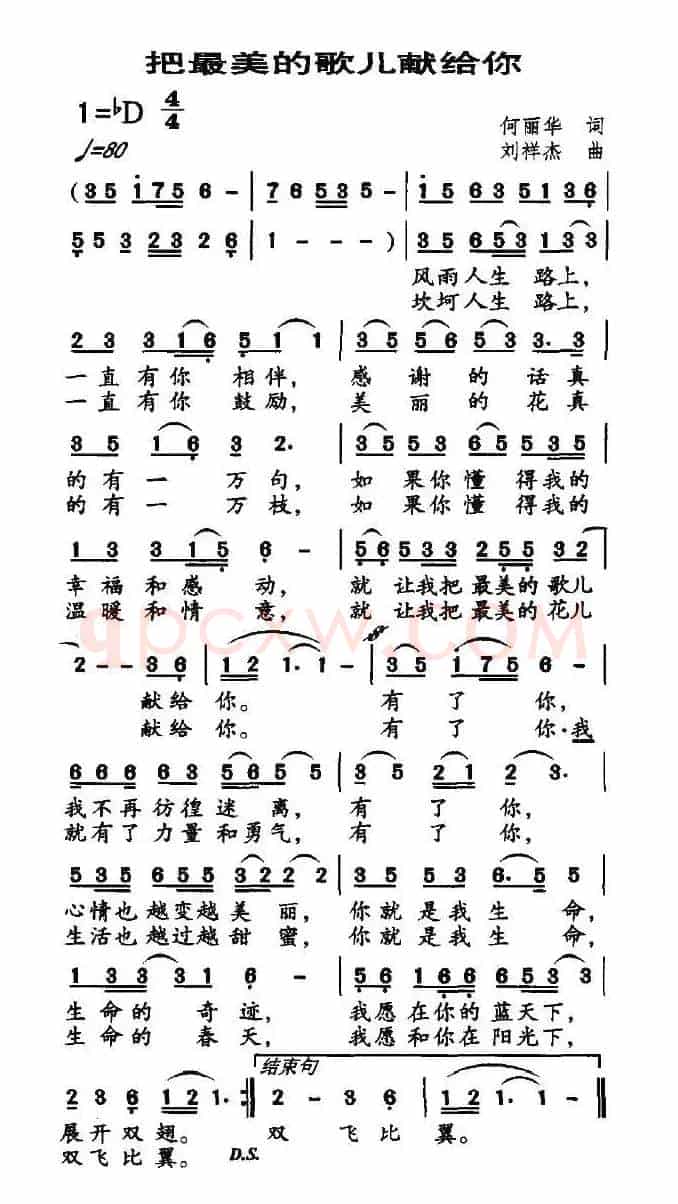 把最美的歌儿献给你
1=♭D 4/4
何丽华 词
♩=80
刘祥杰 曲
(35 i765 6 - | 7 6 5 3 5 - | i 5 6 3 5 5 1 3 6
5 5 3 2 3 3 2 6 | 1 - - - ) | 3 5 6 5 3 1 3 3
风雨人生 路上,
坎坷人生 路上,
2 3 3 1 6 5 1 1 | 3 5 5 6 5 3 3. 3
一直有你 相伴, 感谢的话真
一直有你 鼓励, 美丽的花真
3 5 1 6 3 2. | 3 5 5 3 6 5 5 3 5
的有一 万句, 如果你懂 得我的
的有一 万枝, 如果你懂 得我的
1 3 3 1 5 6 - | 5 6 5 3 3 2 5 5 3 2
幸福和感 动, 就让我把最美的歌儿
温暖和情 意, 就让我把最美的花儿
qpcxw.COM
2 - - 3 6 | 1 2 1. 1 - | 3 5 i 7 5 6 -
献给 你。 有了 你,
献给 你。 有了 你·我
6 6 6 6 6 3 5 6 5 5 | 3 5 2 1 2 3.
我不再彷徨迷 离, 有 了 你,
就有了力量和勇气, 有 了 你,
5 3 5 6 5 5 3 2 2 2 | 3 5 5 3 6. 5 5
心情也越变越美 丽, 你就是我生 命,
生活也越过越甜 蜜, 你就是我生 命,
1 3 3 3 1 6 - | 5 6 1 6 6 5 5 3 3
生命的 奇迹, 我愿在你的蓝天下,
生命的 春天, 我愿和你在阳光下,
结束句
2 3 6 1 2 1. :‖ 2 - 3 6 | 1 2 1. 1 - ‖
展开双翅。 双 飞比 翼。
双飞比翼。 D.S.